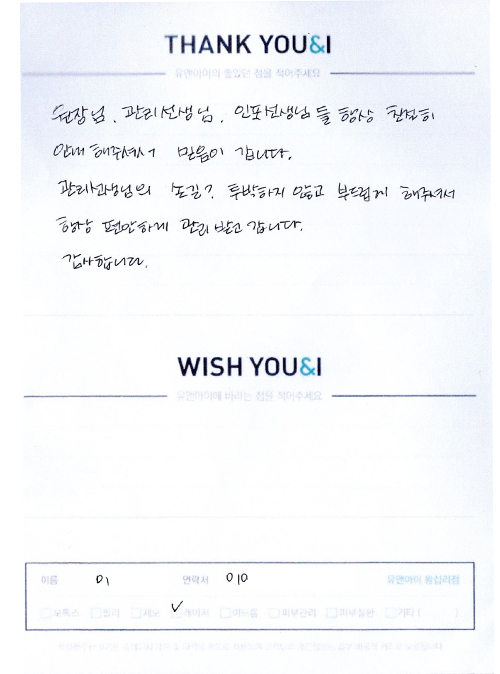 THANK YOU&I
유앤아이의 좋았던 점을 적어주세요
원장님, 관리선생님, 인포선생님들 항상 친절히
안내해주셔서 믿음이 갑니다.
관리선생님의 손길? 투박하지 않고 부드럽게 해주셔서
항상 편안하게 관리 받고 갑니다.
감사합니다.
WISH YOU&I
유앤아이에 바라는 점을 적어주세요
이름 이 연락처 010 유앤아이 왕십리점
보톡스 필러 제모 레이저 여드름 피부관리 피부질환 기타 ( )